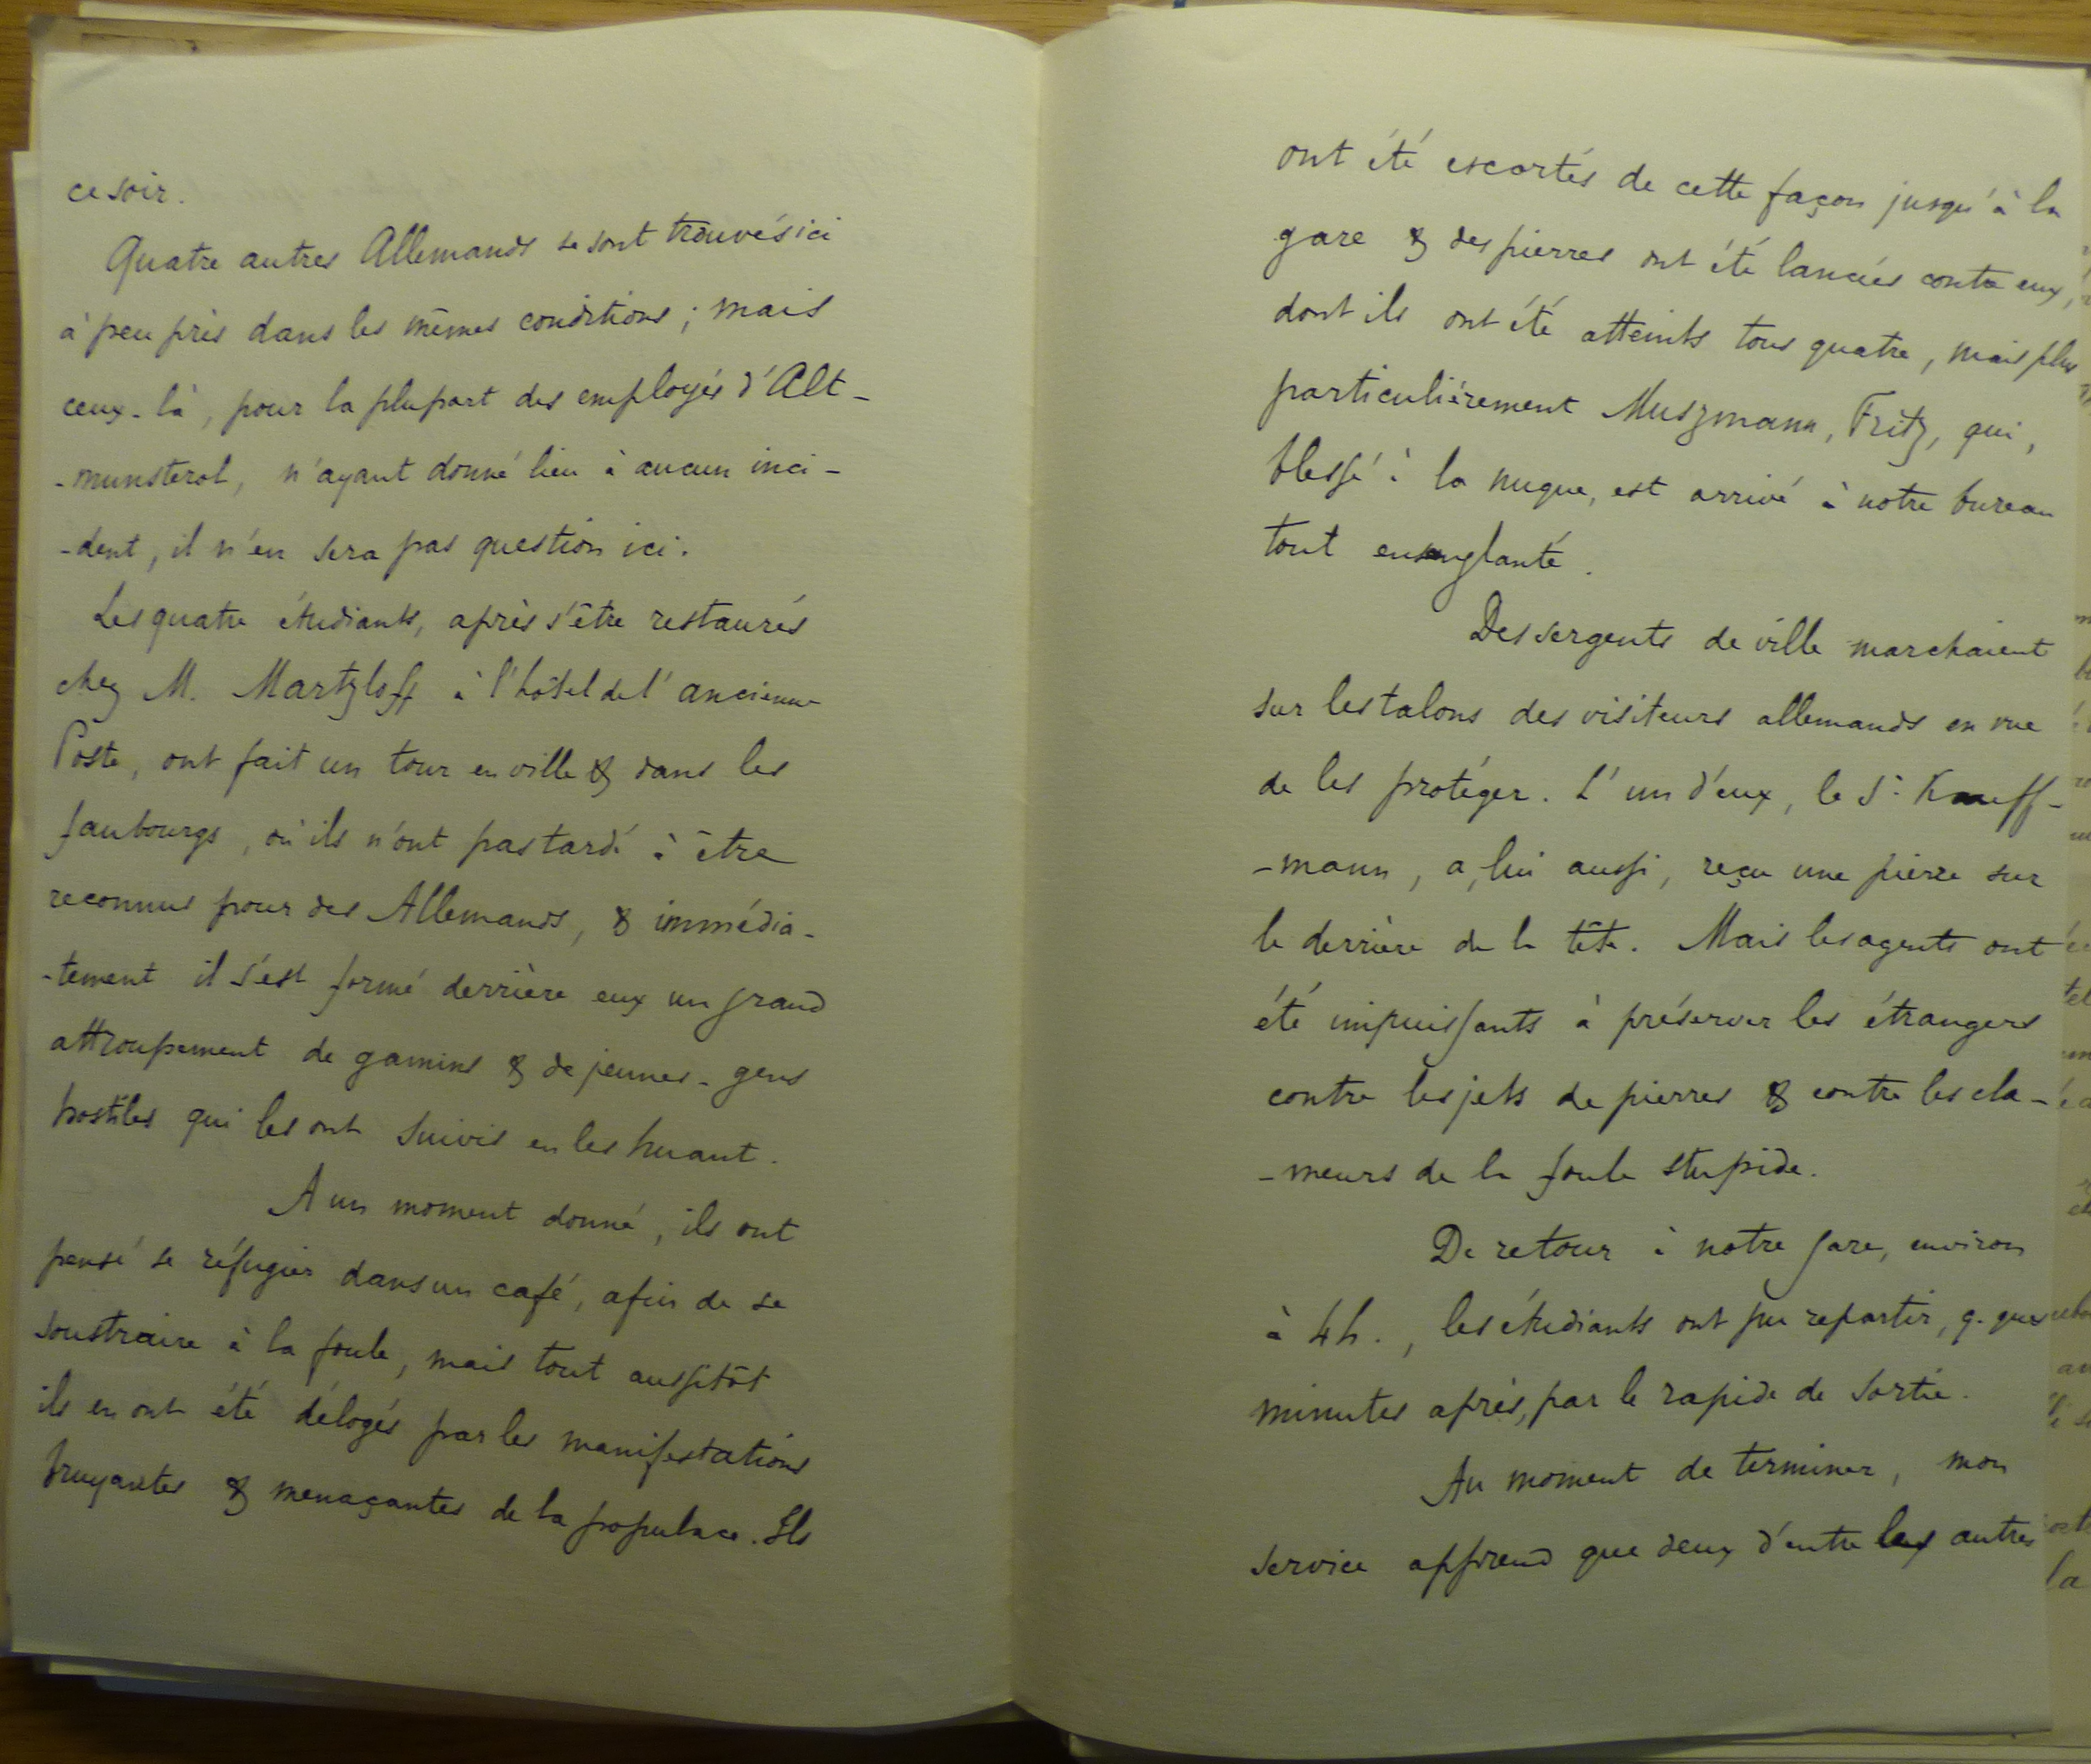 ce soir.
Quatre autres Allemands se sont trouvés ici
à peu près dans les mêmes conditions ; mais
ceux-là, pour la plupart des employés d'Alt-
-munsterol, n'ayant donné lieu à aucun inci-
-dent, il n'en sera pas question ici.
Les quatre étudiants, après s'être restaurés
chez M. Martzloff à l'hôtel de l'ancienne
Poste, ont fait un tour en ville & dans les
faubourgs, où ils n'ont pas tardé à être
reconnus pour des Allemands, & immédia-
-tement il s'est formé derrière eux un grand
attroupement de gamins & de jeunes-gens
hostiles qui les ont suivis en les huant.
A un moment donné, ils ont
pensé se réfugier dans un café, afin de se
soustraire à la foule, mais tout aussitôt
ils en ont été délogés par les manifestations
bruyantes & menaçantes de la populace. Ils
ont été escortés de cette façon jusqu'à la
gare & des pierres ont été lancées contre eux,
dont ils ont été atteints tous quatre, mais plus
particulièrement Muszmann, Fritz, qui,
blessé à la nuque, est arrivé à notre bureau
tout ensanglanté.
Des sergents de ville marchaient
sur les talons des visiteurs allemands en vue
de les protéger. L'un d'eux, le Sr Kauff-
-mann, a, lui aussi, reçu une pierre sur
le derrière de la tête. Mais les agents ont
été impuissants à préserver les étrangers
contre les jets de pierres & contre les cla-
-meurs de la foule stupide.
De retour à notre gare, environ
à 4h., les étudiants ont pu repartir, q. ques
minutes après, par le rapide de sortie.
Au moment de terminer, mon
service apprend que deux d'entre les autres